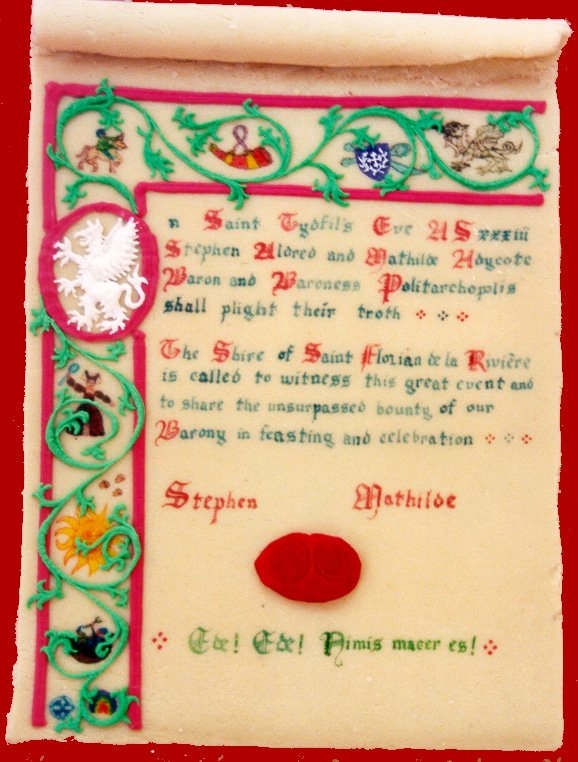 n Saint Tydfil's Eve AS xxxiii
Stephen Aldred and Mathilde Adycote
Baron and Baroness Politarchopolis
shall plight their troth
The Shire of Saint Florian de la Rivière
is called to witness this great event and
to share the unsurpassed bounty of our
Barony in feasting and celebration
Stephen Mathilde
Ede! Ede! Nimis macer es!